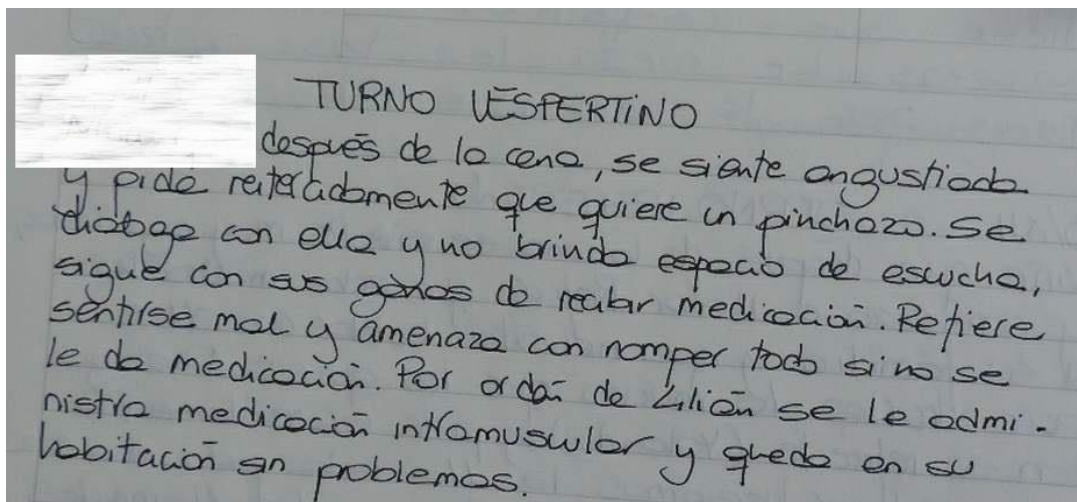 TURNO VESPERTINO
después de la cena, se siente angustiada
y pide reiteradamente que quiere un pinchazo. Se
dialoga con ella y no brinda espacio de escucha,
sigue con sus ganas de recibir medicación. Refiere
sentirse mal y amenaza con romper todo si no se
le da medicación. Por orden de Lilián se le admi-
nistra medicación intramuscular y queda en su
habitación sin problemas.